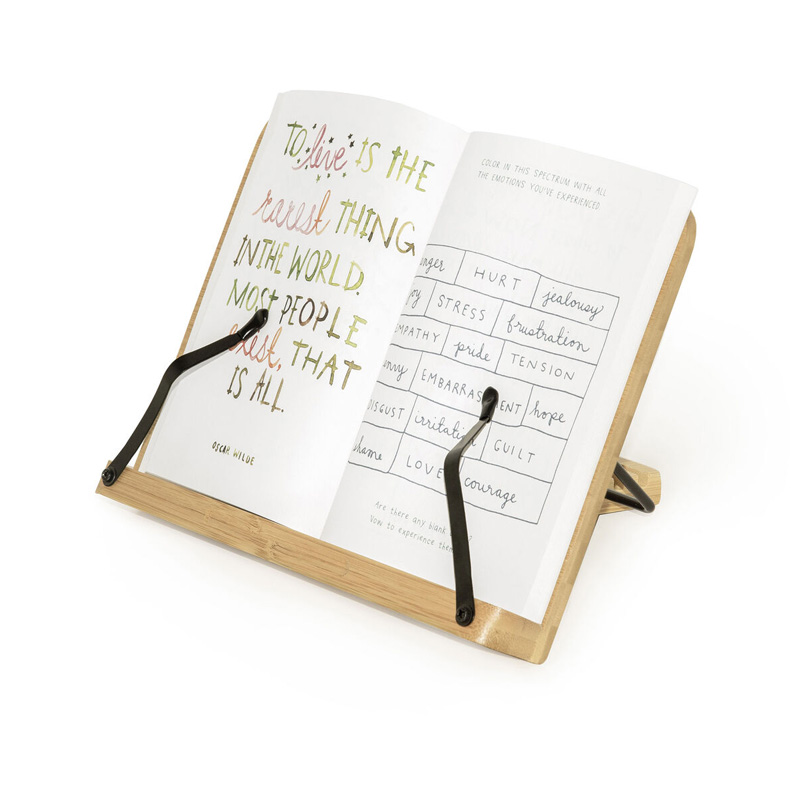 TO live IS THE
rarest THING
IN THE WORLD.
MOST PEOPLE
exist, THAT
IS ALL.
OSCAR WILDE
COLOR IN THIS SPECTRUM WITH ALL
THE EMOTIONS YOU'VE EXPERIENCED.
HURT jealousy
STRESS frustration
pride TENSION
EMBARRASSMENT hope
DISGUST irritation GUILT
LOVE courage
Are there any blank
Vow to experience